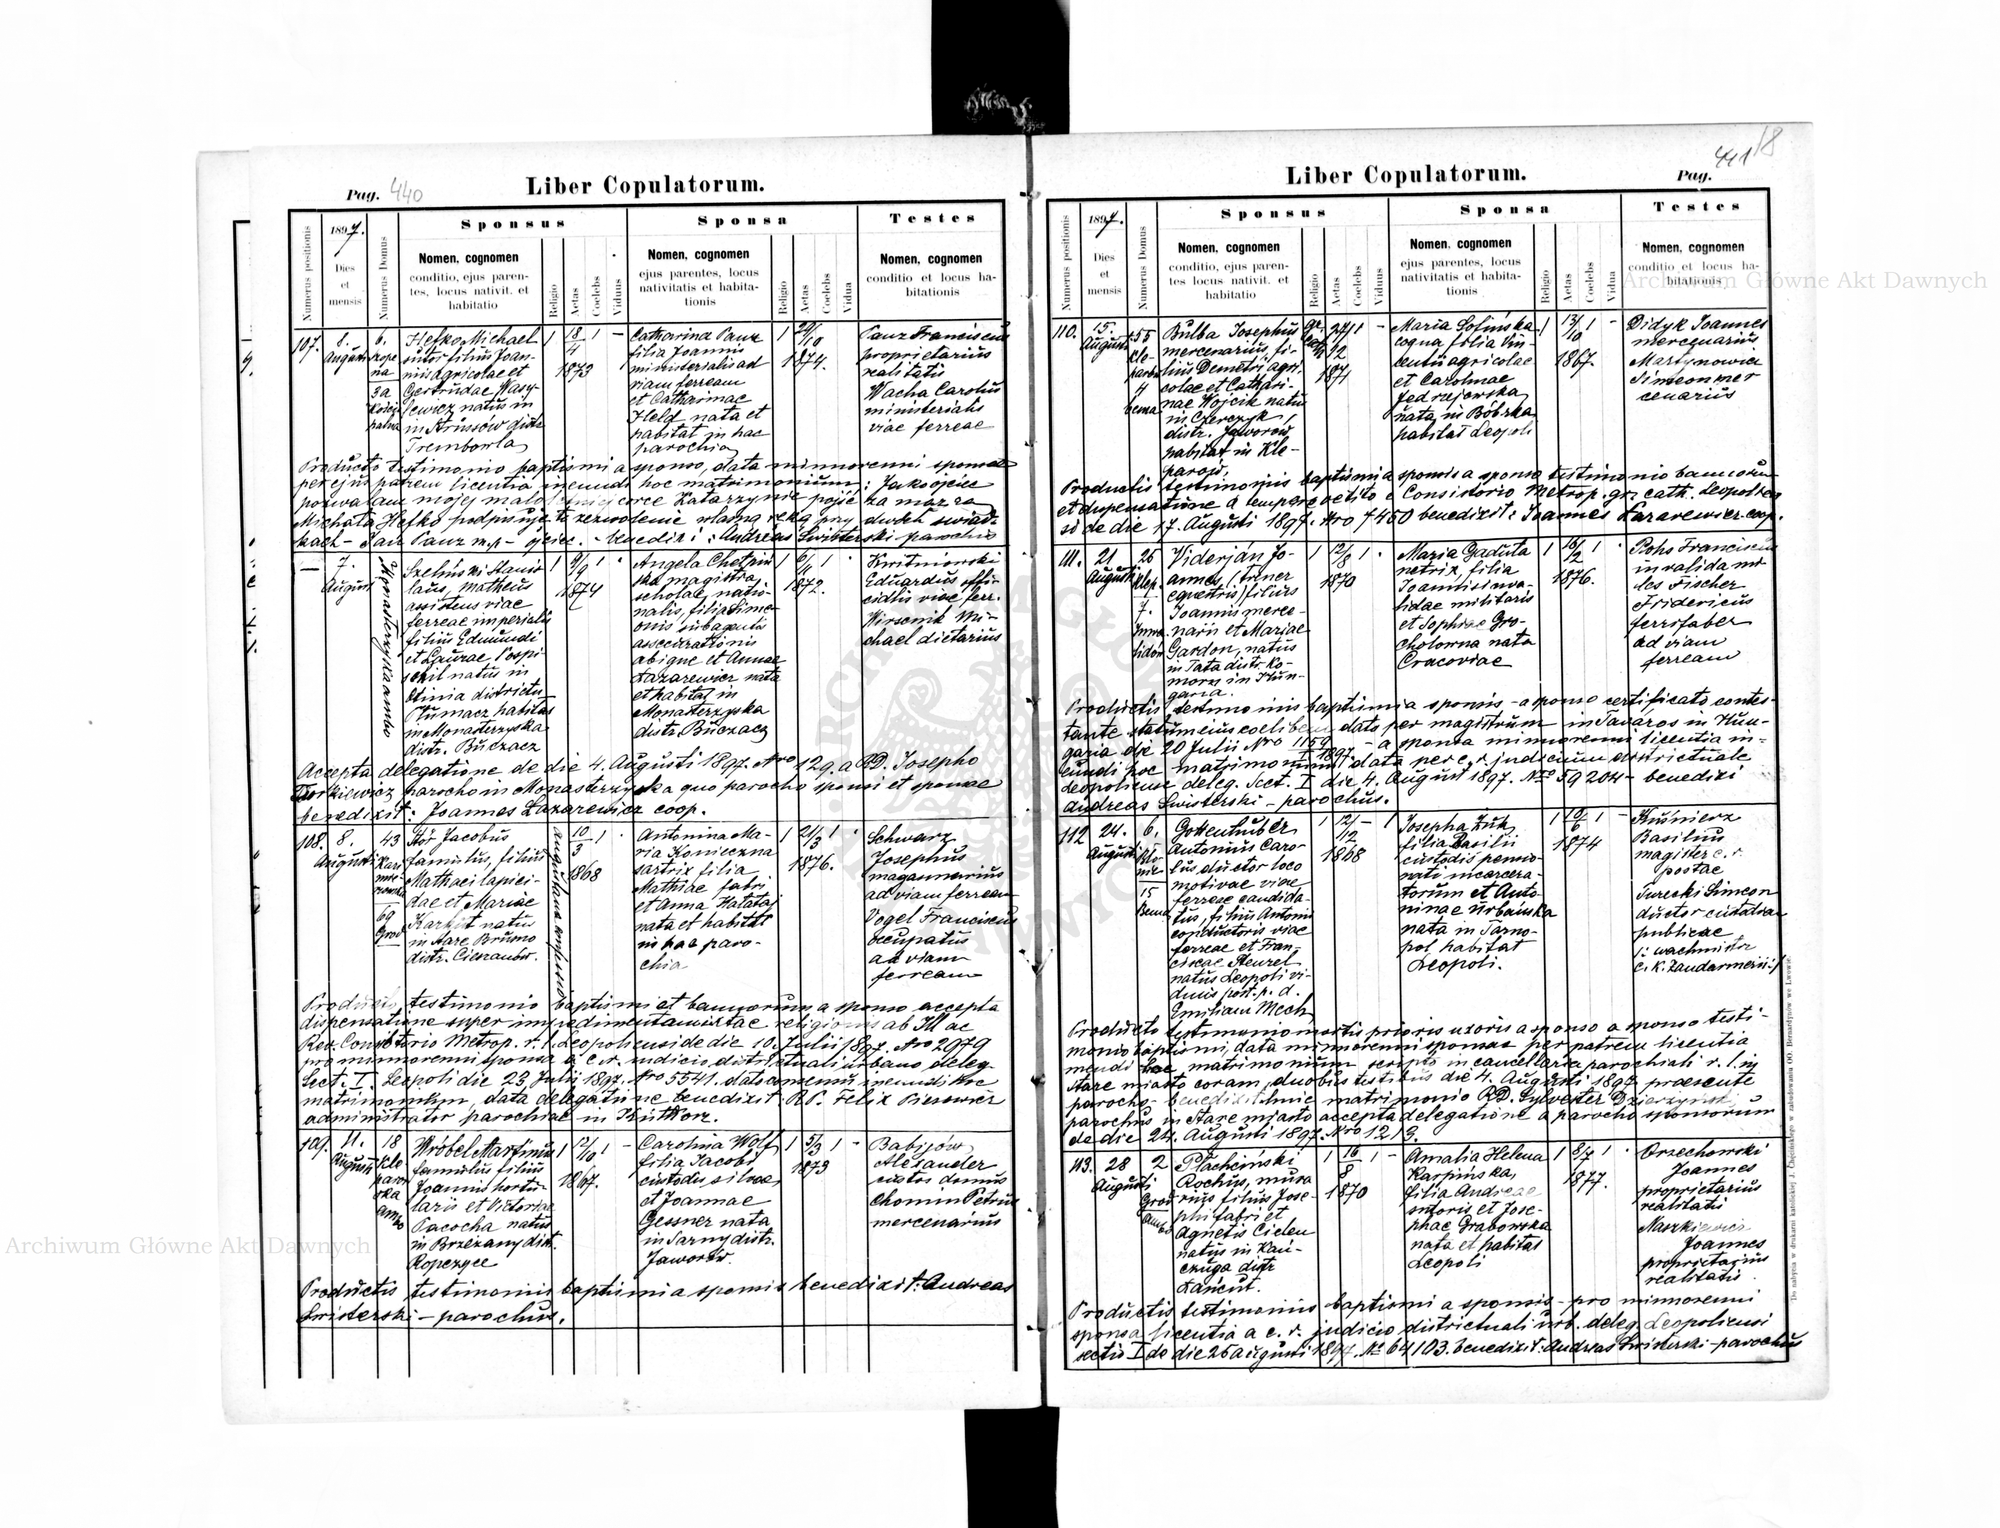 Pag. 440
Liber Copulatorum.
Numerus positionis
1897.
Dies
et
mensis
Numerus Domus
Sponsus
Nomen, cognomen
conditio, ejus paren-
tes, locus nativit. et
habitatio
Religio
Aetas
Coelebs
Viduus
Sponsa
Nomen, cognomen
ejus parentes, locus
nativitatis et habita-
tionis
Religio
Aetas
Coelebs
Vidua
Testes
Nomen, cognomen
conditio et locus ha-
bitationis
107.
8.
Augusti
6.
3a
Hefko Michael
sutor filius Joan-
nis agricolae et
Gertrudae Wasy-
lewicz natus in
in Strusow distr.
Trembowla
1
18/4
1873
1
-
Catharina Panz
filia Joannis
ministerialis ad
viam ferream
et Catharinae
Held nata et
habitat in hac
parochia
1
29/10
1874.
1
-
Panz Franciscus
proprietarius
realitatis
Wacha Carolus
ministerialis
viae ferreae
Producto testimonio baptismi a sponso, data minorenni sponsae
per ejus patrem licentia ineundi hoc matrimonium: Jako ojciec
pozwalam mojej małoletniej córce Katarzynie pójść za mąż za
Michała Hefko podpisuję to zezwolenie własną ręką przy dwóch świad-
kach - Jan Panz m.p - ojciec. - benedixi: Andreas Swisterski parochus
-
7.
Augusti
Monasterzyska ambo
Szeliński Stanis-
laus, Matheus
assistens viae
ferreae imperialis
filius Edmundi
et Laurae Pospi-
schil natus in
Ottinia districtu
Tłumacz habitat
in Monasterzyska
distr. Buczacz
1
9/9
1874
1
Angela Chetpiń-
ska magistra
scholae natio-
nalis, filia Sime-
onis subagentis
assecurationis
abigne et Annae
Łazarewicz nata
et habitat in
Monasterzyska
distr. Buczacz
1
6/11
1872.
1
Kwitniowski
Eduardus offi-
cialis viae ferr.
Wirsenik Mi-
chael dietarius
Accepta delegatione de die 4. Augusti 1897. Nro 129. a RD. Josepho
Tworkiewicz parocho in Monasterzyska quo parocho sponsi et sponsae
benedixit: Joannes Łazarewicz coop.
108.
8.
Augusti
43
69
Grod
Stór Jacobus
famulus, filius
Mathaei lapici-
dae et Mariae
Karkut natus
in Stare Brusno
distr. Cieszanów.
augustana confessio
10/3
1868
1
Antonina Ma-
ria Konieczna
sartrix filia
Mathiae fabri
et Anna Hałataj
nata et habitat
in hac paro-
chia
1
21/3
1876.
1
Schwarz
Josephus
magasinarius
ad viam ferream
Vogel Franciscus
occupatus
ad viam
ferream
Producto testimonio baptismi et bannorum a sponso accepta
dispensatione super impedimentu mixtae religionis ab Ill ac
Rev. Consistorio Metrop. r. l. Leopoliensi de die 10. Julii 1897. Nro 2979
pro minorenni sponsa a c. r. iudicio districtuali urbano deleg.
Sect. I. Leopoli die 23 Julii 1897. Nro 5541. dato consensu ineundi hoc
matrimonium, data delegatione benedixit. RP. Felix Piesowicz
administrator parochiae in Kutkorz.
109.
11.
Augusti
18
Klo
parow
ska
ambo
Wróbel Martinus
famulus filius
Joannis hortu-
laris et Victoriae
Pacocha natus
in Brzezany distr.
Ropczyce
1
12/10
1867.
1
-
Carolina Wolf
filia Jacobi
custodis silvae
et Joannae
Gessner nata
in Tarny distr.
Jaworów.
1
5/3
1873
1
-
Babijów
Alexander
custos domus
Chomin Petrus
mercenarius
Productis testimoniis baptismi a sponsis benedixit: Andreas
Swisterski - parochus.
Liber Copulatorum.
Pag. 441
18
Numerus positionis
1897.
Dies
et
mensis
Numerus Domus
Sponsus
Nomen, cognomen
conditio, ejus paren-
tes, locus nativit. et
habitatio
Religio
Aetas
Coelebs
Viduus
Sponsa
Nomen, cognomen
ejus parentes, locus
nativitatis et habita-
tionis
Religio
Aetas
Coelebs
Vidua
Testes
Nomen, cognomen
conditio et locus ha-
bitationis
110.
15.
Augusti
55
Klo-
parow
4
Bema
Bulba Josephus
mercenarius, fi-
lius Demetri agri-
colae et Cathari-
nae Wójcik natus
in Czerczyk,
distr. Jaworów
habitat in Kle-
parów.
gr.
cath
27/12
1871
1
-
Maria Sofińska
coqua filia Vin-
centii agricolae
et Carolinae
Jedrzejewska
nata in Bóbrka
habitat Leopoli
1
13/10
1867.
1
-
Didyk Joannes
mercenarius
Martynowicz
Simeon mer
cenarius
Productis testimoniis baptismi a sponsis a sponso testimonio bannorum
et dispensatione a tempore vetito e Consistorio Metrop. gr. cath. Leopolien
si de die 17. Augusti 1897. Nro 7450 benedixit: Joannes Łazarewicz coop.
111.
21.
Augusti
26
Klep.
7.
Viderján Jo-
annes, (trener
equestris) filius
Joannis merce-
narii et Mariae
Gardon, natus
in Tata distr. Ko-
morn in Hun-
garia.
1
12/8
1870
1
Maria Gaduła
netrix, filia
Joannis inva-
lidae militaris
et Sophiae Gro-
cholowna nata
Cracoviae
1
16/2
1876.
1
Rohs Franciscus
invalida mi-
les Fischer
Fridericus
ferrifaber
ad viam
ferream
Productis testimoniis baptismi a sponsis - a sponso certificato contes-
tante statum eius coelibem dato per magistrum in Tavaros in Hun-
garia die 20 Julii Nro 1159/1897 - a sponsa minorenni licentia in-
eundi hoc matrimonium data per c. r. judicium districtuale
Leopoliense deleg. Sect. I die 4. August 1897. Nro 59204 - benedixi
Andreas Swisterski - parochus.
112
24.
Augusti
6.
15
Bema
Gottenhuber
Antonius Caro-
lus ductor loco
motivae viae
ferreae candida-
tus, filius Antonii
conductoris viae
ferreae et Fran-
ciscae Stenzel
natus Leopoli vi-
duus post. p. d.
Emiliam Mech
1
12/12
1868
-
1
Josepha Żuk
filia Basilii
custodis pensio-
nati incarcera-
torum et Anto-
ninae Urbańska
nata in Tarno-
pol habitat
Leopoli.
1
10/6
1874
1
-
Kuśnierz
Basilius
magister c. r.
postae
Turecki Simeon
ductor custodiae
publicae
/: wachmistr
c. k. żandarmerii:/
Producto testimonio mortis prioris uxoris a sponso a sponso testi-
monio baptismi, data minorenni sponsae per patrem licentia
ineundi hoc matrimonium scripto in cancellaria parochiali r. l. in
Stare miasto coram duobus testibus die 4. Augusti 1897 praesente
parocho - benedixit huic matrimonio RD. Sylvester Dzierzyński
parochus in Stare miasto accepta delegatione a parocho sponsorum
de die 24. Augusti 1897. Nro 1213.
113.
28
Augusti
2
Grod
ambo
Płachciński
Rochus, mura
rius filius Jose-
phi fabri et
Agnetis Cielen
natus in Kań-
czuga distr
Łańcut.
1
16/8
1870
1
-
Amalia Helena
Karpińska,
filia Andreae
sutoris et Jose-
phae Grabowska
nata et habitat
Leopoli
1
8/7
1877.
1
Orzechowski
Joannes
proprietarius
realitatis
Maszkiewicz
Joannes
proprietarius
realitatis
Productis testimoniis baptismi a sponsis - pro minorenni
sponsa licentia a c. r. judicio districtuali urb. deleg. Leopoliensi
sectio I de die 26 Augusti 1897. No 64103. benedixit: Andreas Swisterski - parochus
Do nabycia w drukarni katolickiej J. Chęcińskiego w zabudowaniu OO. Bernardynów we Lwowie.
Archiwum Główne Akt Dawnych
Archiwum Główne Akt Dawnych